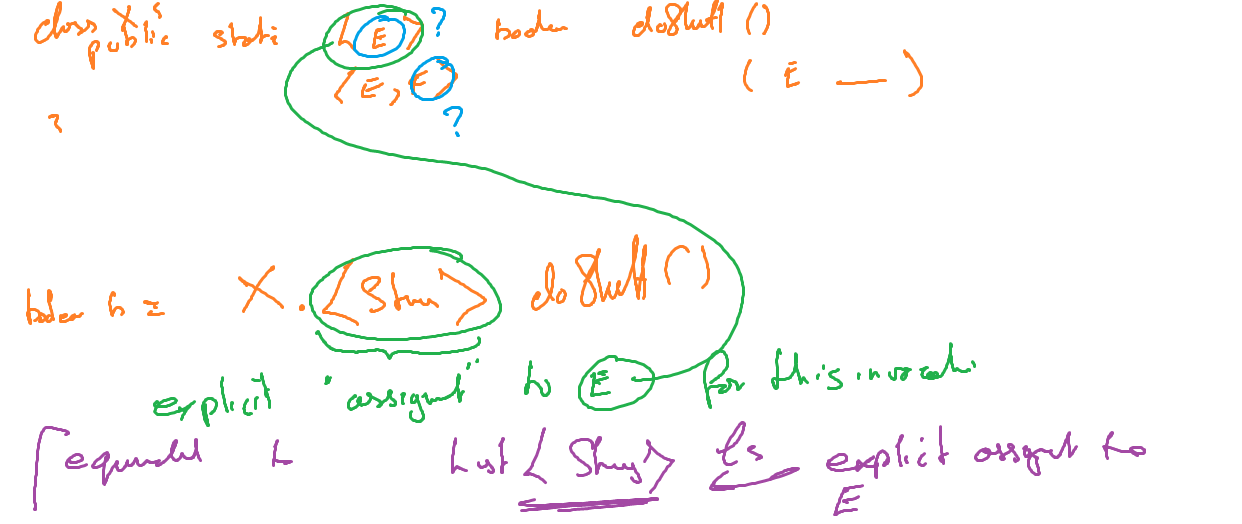 class X {
public static <E> ? boolean doStuff ()
<E, E> ( E — )
}
?
boolean b = X.<String> doStuff ()
explicit "assignment" to E for this invocation
equivalent to List <String> ls explicit assignment to
E